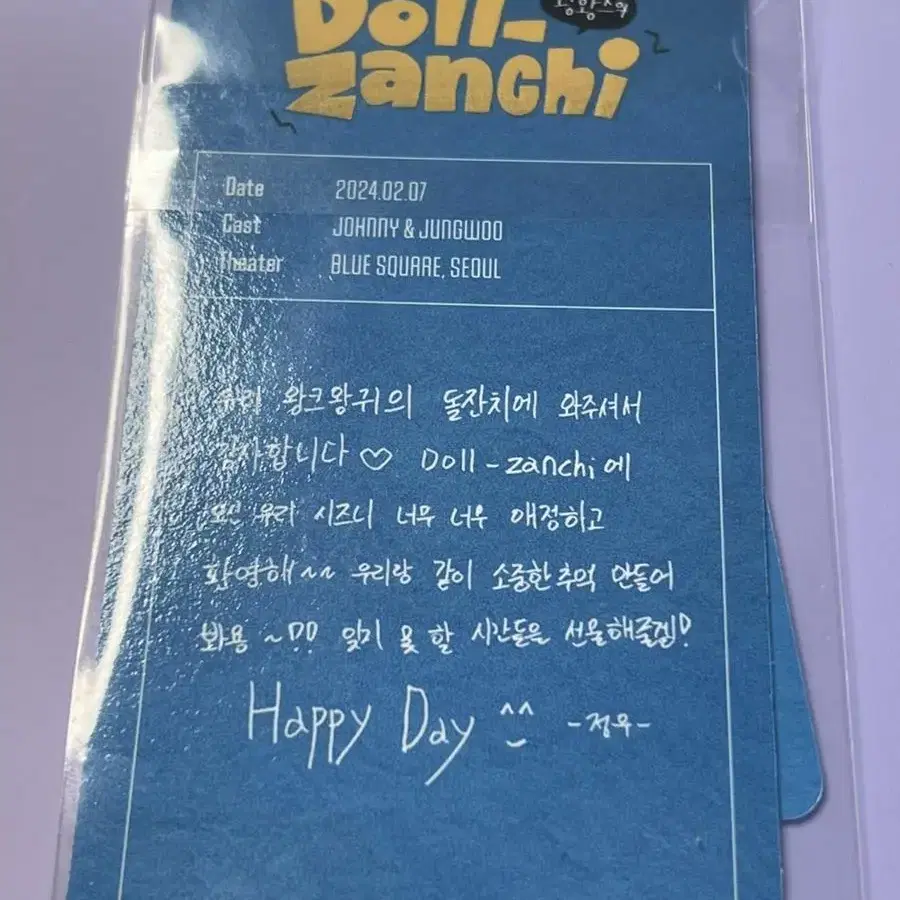 Doll-
zanchi
Date 2024.02.07
Cast JOHNNY & JUNGWOO
Theater BLUE SQUARE, SEOUL
우리 왕크왕귀의 돌잔치에 와주셔서
감사합니다 ♡ Doll-zanchi에
오신 우리 시즈니 너무 너무 애정하고
환영해~~ 우리랑 같이 소중한 추억 만들어
봐용~!! 잊기 못 할 시간들을 선물해줄겡!
Happy Day ^^ -정우-